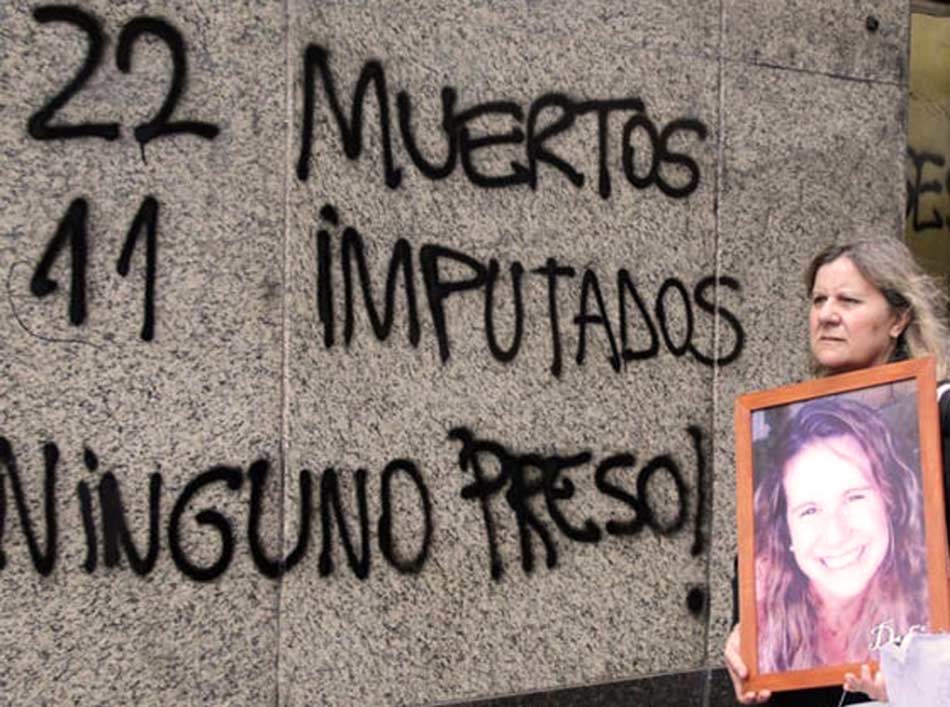 22 MUERTOS
11 iMPUTADOS
NiNGUNO PRESO!